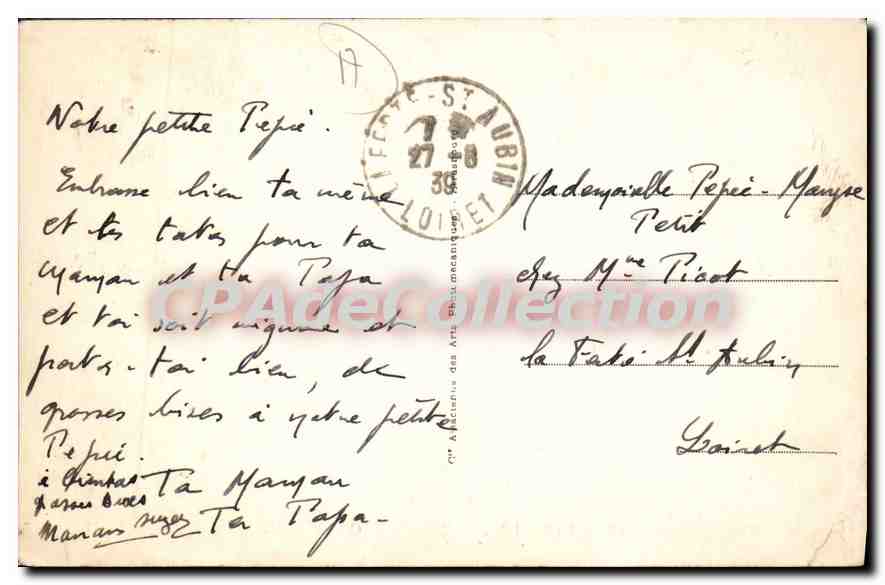 17
Notre petite Pepée.
Embrasse bien ta mémé
et tes tatas pour ta
Maman et ta Papa
et toi soit mignonne et
portes-toi bien, de
grosses bises à notre petite
Pepée.
Ta Maman
Ta Papa-
à
LA FERTÉ-ST AUBIN
27-8
39
LOIRET
Cie Alsacienne des Arts Photomécaniques - Strasbourg
Mademoiselle Pepée-Maryse
Petit
chez Mme Picot
la Ferté St Aubin
Loiret
CPAdeCollection